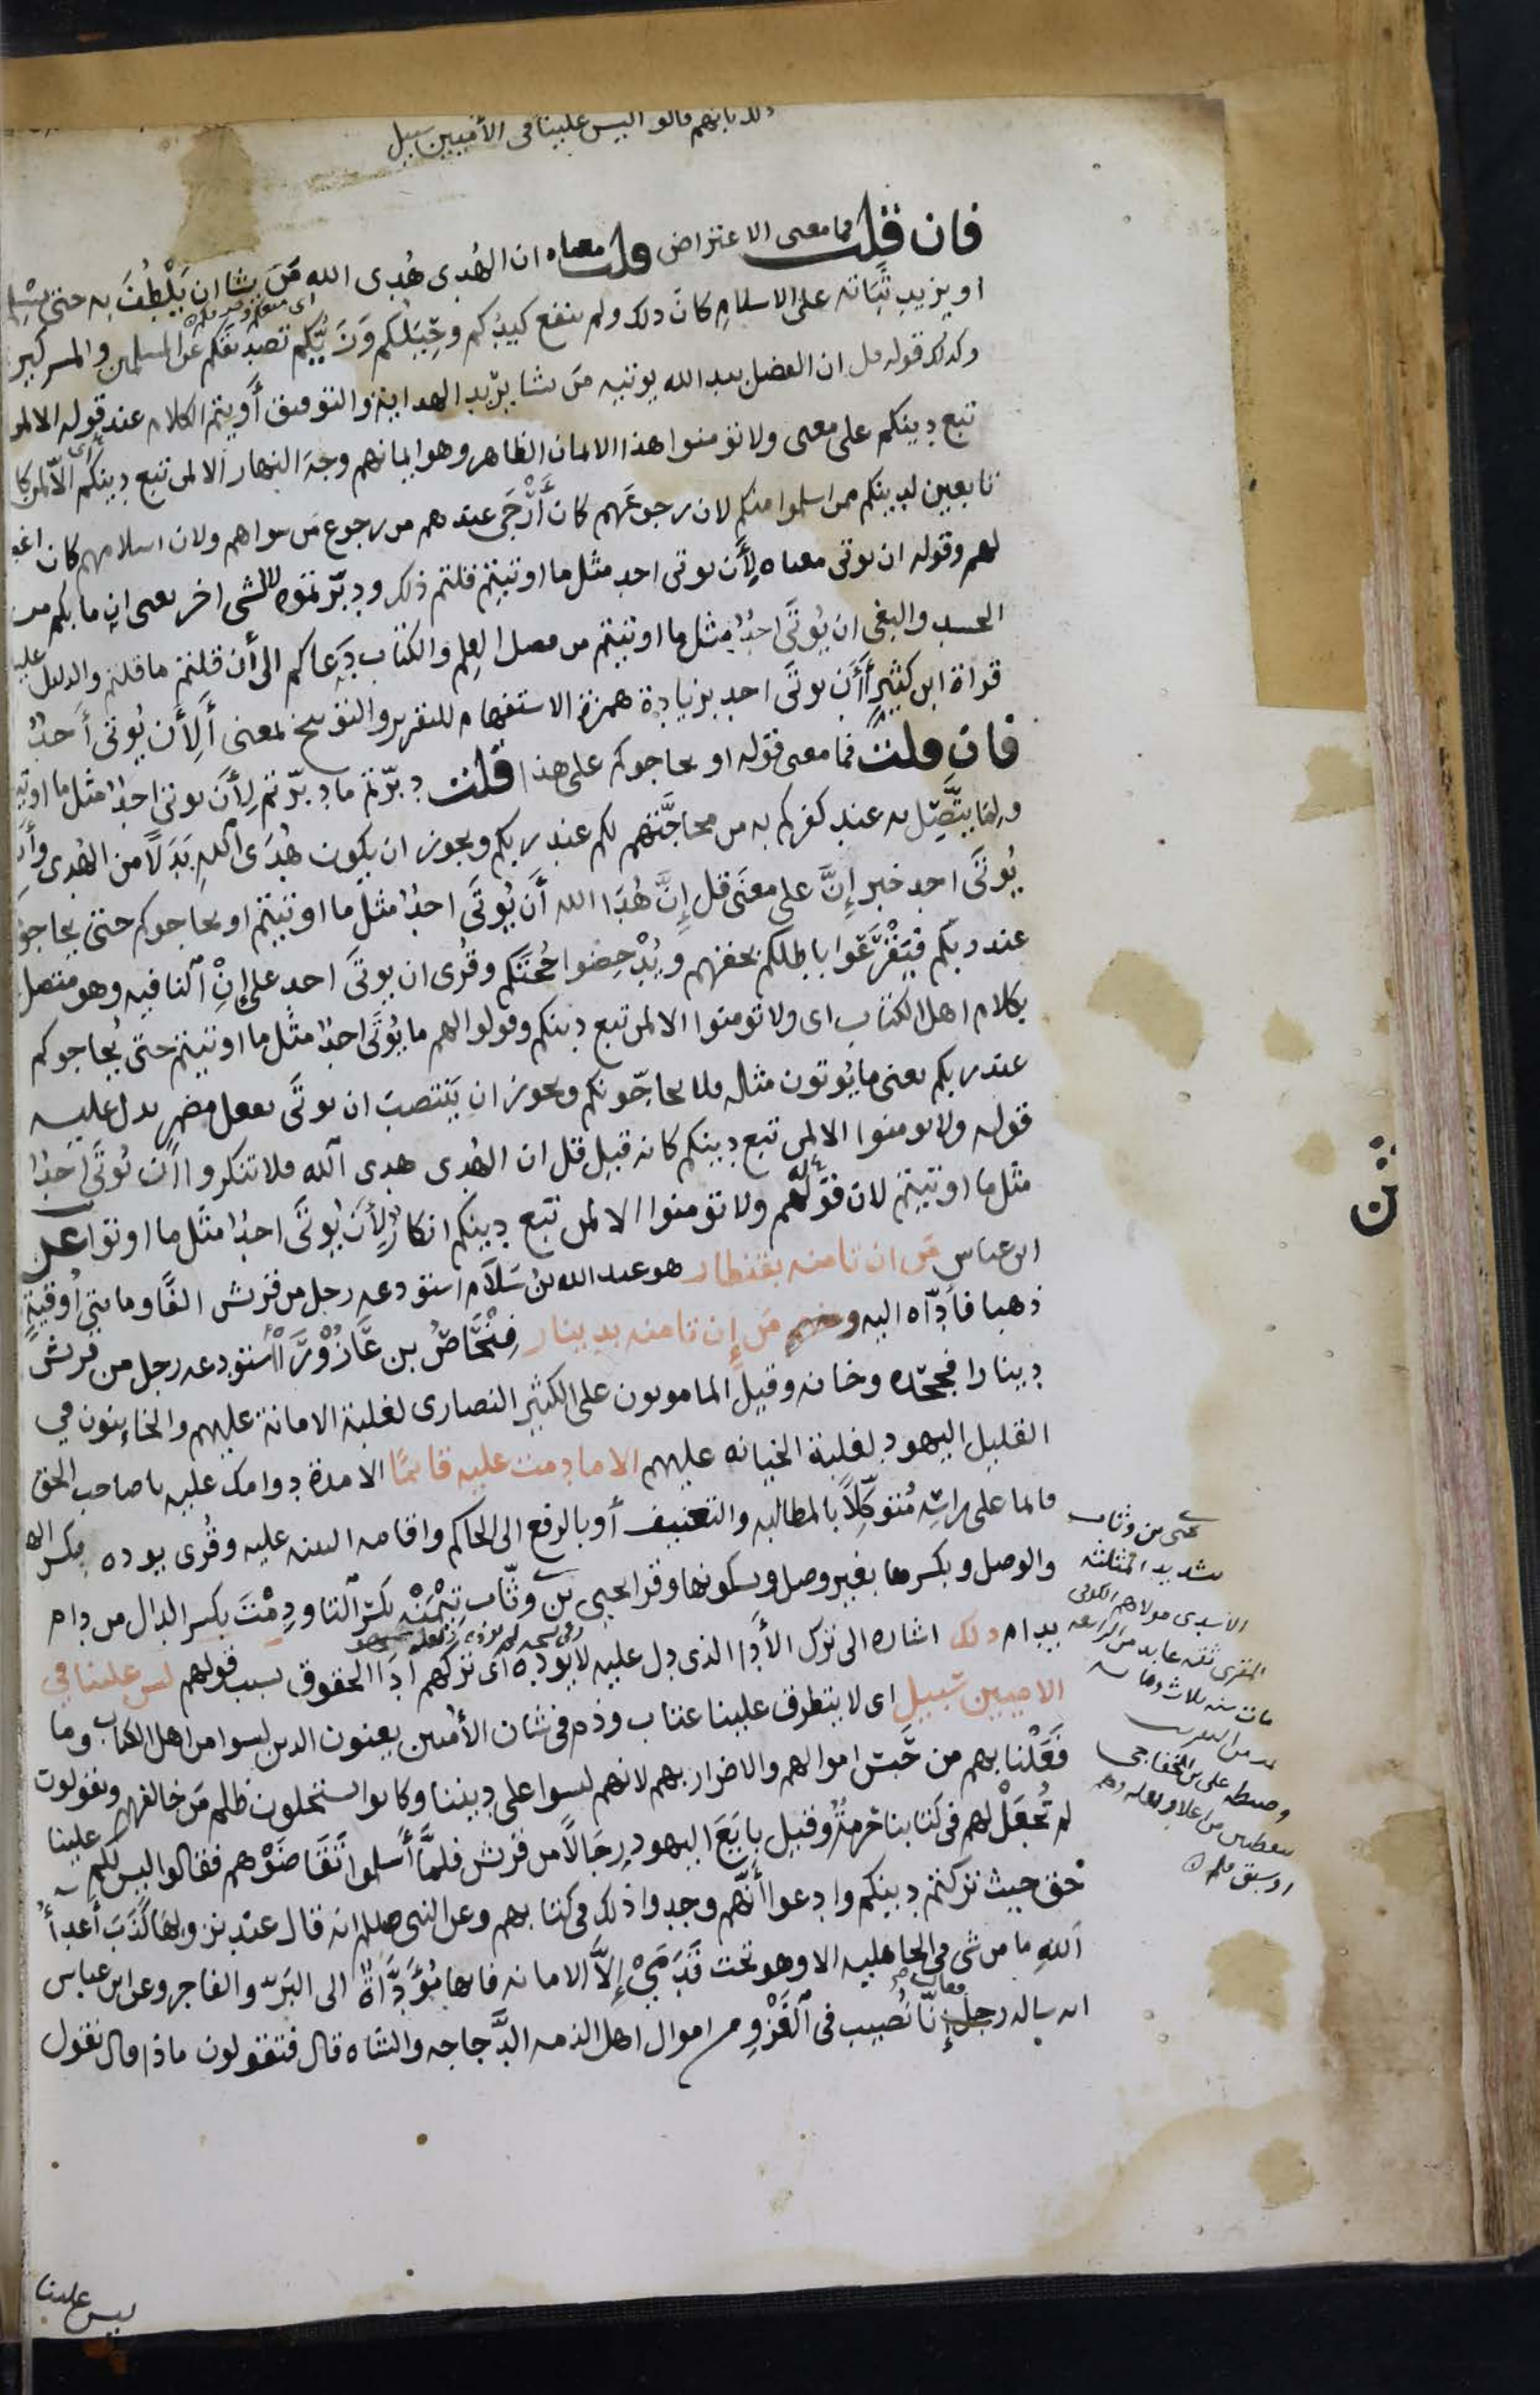 ذلك بانهم قالوا ليس علينا فى الأميين سبيل
فان قلت فما معنى الاعتراض قلت معناه ان الهُدى هُدى الله مَن يشا ان يَلْطُفَ به حتى يُسْلِم
او يزيد ثَبَاته على الاسلام كان ذلك ولم ينفع كيدكم وحِيَلكم وزَيُّكم تصديقكم عن المسلمين والمشركين
وكذلك قوله قل ان الفضل بيد الله يوتيه من يشا يريد الهداية والتوفيق أو يتم الكلام عند قوله الا لمن
تبع دينكم على معنى ولا تؤمنوا هذا الايمان الظاهر وهو ايمانهم وجه النهار الا لمن تبع دينكم الا لمن كا
تابعين لدينكم ممن اسلموا منكم لان رجوعهم كان أَرْجَى عندهم من رجوع من سواهم ولان اسلامهم كان اغيظ
لهم وقوله ان يوتى معناه لأن يوتى احد مثل ما اوتيتم قلتم ذلك ودبّرتموه لا لشى اخر يعنى ان ما بكم من
الحسد والبغى ان يُوتَى احدٌ مثل ما اوتيتم من فضل العلم والكتاب دعاكم الى أن قلتم ما قلتم والدليل عليه
قراة ابن كثير أأن يوتَى احد بزيادة همزة الاستفهام للتقرير والتوبيخ بمعنى أَلِأَن يُوتى أَحدٌ
فان قلت فما معنى قوله او يحاجوكم على هذا قلت دبّرتم ما دبّرتم لأن يوتى احد مثل ما اوتيتم
ولِمَا يتَّصِل به عند كفركم به من محاجَّتهم لكم عند ربكم ويجوز ان يكون هُدَى اللهِ بَدَلًا من الهُدى وأن
يُوتَى احد خبر إنَّ على معنَى قل إنَّ هُدَا الله أَن يُوتَى احدٌ مثل ما اوتيتم او يحاجوكم حتى يحاجوكم
عند ربكم فيَقْرَعوا باطلكم بحقهم ويُدْحِضوا حُجّتَكم وقُرى ان يوتَى احد على إنْ النافيه وهو متصل
بكلام اهل الكتاب اى ولا تومنوا الا لمن تبع دينكم وقولوا لهم ما يُوتَى احدٌ مثل ما اوتيتم حتى يُحاجوكم
عند ربكم يعنى ما يُوتون مثله فلا يحاجّونكم ويجوز ان يَنتصبَ ان يوتَى بفعل مضمر يدل عليه
قوله ولا تومنوا الا لمن تبع دينكم كانه قيل قل ان الهُدى هدى الله فلا تنكروا أن يُوتَى احدٌ
مثل ما اوتيتم لان قولهم ولا تؤمنوا الا لمن تبع دينكم انكارٌ لِأَن يُوتَى احدٌ مثل ما اوتوا عن
ابن عباس مَن ان تامنه بقنطار هو عبد الله بنُ سَلَام استودعه رجل من قريش الفًا ومايتى أُوقيةٍ
ذهبا فأدّاه اليه ومنهم مَن إن تامنه بدينار فِنْحَاصُ بن عَازُوْرَآ استودعه رجل من قريش
دينارا فجحده وخانه وقيل المامونون على الكثير النصارى لغلبة الامانة عليهم والخاينون في
القليل اليهود لغلبة الخيانه عليهم الا ما دمت عليه قائمًا الا مدة دوامك عليه يا صاحب الحق
قايما على راسِه مُتوكِّلًا بالمطالبه والتعنيف أو بالرفع الى الحاكم واقامه البينه عليه وقُرى يوده بكسر الها
والوصل وبكسرها بغير وصل وبسكونها وقرا يحيى بن وثّاب تِيْمَنْه بكسر التا ودِمْتَ بكسر الدال من دام
يدام ذلك اشاره الى ترك الأدا الذى دل عليه لا يوده اى تركهم أدَا الحقوق بسبب قولهم ليس علينا في
الاميين سبيل اى لا يتطرق علينا عتاب وذم فى شان الأميين يعنون الذين ليسوا من اهل الكتاب وما
فَعَلْنا بهم من حَبْس اموالهم والاضرار بهم لانهم ليسوا على ديننا وكانوا يستحلون ظلم مَن خالفهم ويقولون
لم تُجعَلْ لهم فى كتابنا حُرمةٌ وقيل بايَعَ اليهود رِجَالًا من قريش فلمَّا أَسلموا تَقَاضَوْهم فقالوا ليس لكم علينا
حق حيث تركتم دينكم وادعوا أنهم وجدوا ذلك فى كتابهم وعن النبى صللم انه قال عند نزولها كَذَبَ أعدآ
اللهِ ما من شى فى الجاهليه الا وهو تحت قَدَمَيَّ إلَّا الامانه فانها مُؤَدَّاةٌ الى البَرّ والفاجر وعن ابن عباس
انه ساله رجل فقال إنّا نُصيب فى الغَزْو من اموال اهل الذمه الدَّجاجه والشاه قال فتقولون ماذا قال نقول
ليس علينا
يحيى بن وثاب
بتشديد المثلثه
الاسدى مولاهم الكوفى
المقرى ثقه عابد من الرابعه
مات سنه ثلاث ومايه